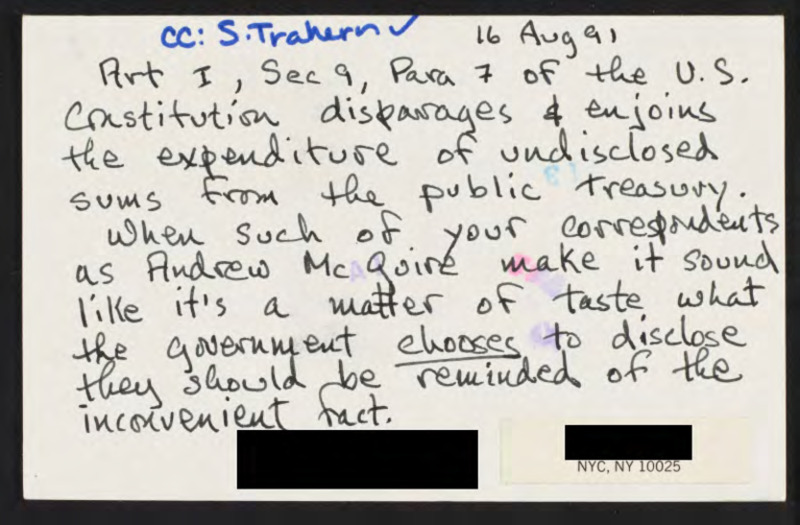 cc: S. Trahern ✓ 16 Aug 91
Art I, Sec 9, Para 7 of the U.S.
Constitution disparages & enjoins
the expenditure of undisclosed
sums from the public treasury.
When such of your correspondents
as Andrew McGuire make it sound
like it's a matter of taste what
the government chooses to disclose
they should be reminded of the
inconvenient fact.
NYC, NY 10025